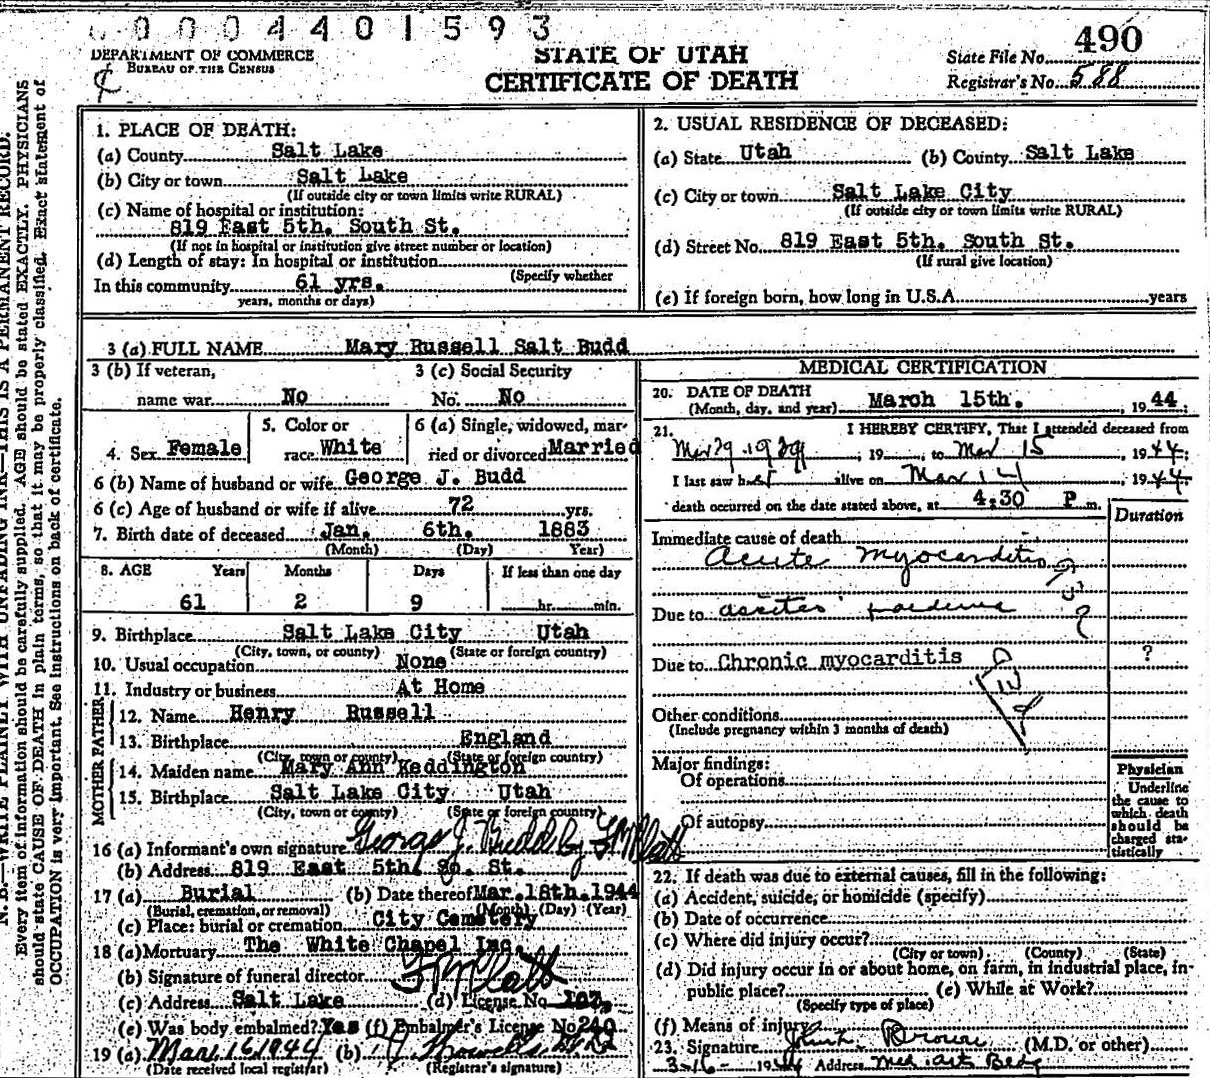 00004401593
DEPARTMENT OF COMMERCE
BUREAU OF THE CENSUS
STATE OF UTAH
CERTIFICATE OF DEATH
State File No. 490
Registrar's No. 588
N. B.—WRITE PLAINLY WITH UNFADING INK—THIS IS A PERMANENT RECORD.
Every item of information should be carefully supplied. AGE should be stated EXACTLY. PHYSICIANS
should state CAUSE OF DEATH in plain terms, so that it may be properly classified. Exact statement of
OCCUPATION is very important. See instructions on back of certificate.
1. PLACE OF DEATH:
(a) County Salt Lake
(b) City or town Salt Lake
(If outside city or town limits write RURAL)
(c) Name of hospital or institution:
819 East 5th. South St.
(If not in hospital or institution give street number or location)
(d) Length of stay: In hospital or institution
(Specify whether
In this community 61 yrs.
years, months or days)
2. USUAL RESIDENCE OF DECEASED:
(a) State Utah (b) County Salt Lake
(c) City or town Salt Lake City
(If outside city or town limits write RURAL)
(d) Street No. 819 East 5th. South St.
(If rural give location)
(e) If foreign born, how long in U.S.A. years
3 (a) FULL NAME Mary Russell Salt Budd
3 (b) If veteran, 3 (c) Social Security
name war. No No. No
4. Sex Female 5. Color or race White 6 (a) Single, widowed, married or divorced Married
6 (b) Name of husband or wife George J. Budd
6 (c) Age of husband or wife if alive 72 yrs.
7. Birth date of deceased Jan. 6th. 1883
(Month) (Day) Year)
8. AGE Years Months Days If less than one day
61 2 9 hr. min.
9. Birthplace Salt Lake City Utah
(City, town, or county) (State or foreign country)
10. Usual occupation None
11. Industry or business At Home
MOTHER FATHER
12. Name Henry Russell
13. Birthplace England
(City, town or county) (State or foreign country)
14. Maiden name Mary Ann Keddington
15. Birthplace Salt Lake City Utah
(City, town or county) (State or foreign country)
16 (a) Informant's own signature George J. Budd by
(b) Address 819 East 5th. So. St.
17 (a) Burial (b) Date thereof Mar. 18th. 1944
(Burial, cremation, or removal) (Month) (Day) (Year)
(c) Place: burial or cremation City Cemetery
18 (a) Mortuary The White Chapel Inc.
(b) Signature of funeral director
(c) Address Salt Lake (d) License No 107
(e) Was body embalmed? Yes (f) Embalmer's License No 240
19 (a) Mar 16 1944 (b)
(Date received local registrar) (Registrar's signature)
MEDICAL CERTIFICATION
20. DATE OF DEATH
(Month, day, and year) March 15th. , 19 44;
21. I HEREBY CERTIFY, That I attended deceased from
, 19 , to Mar 15 , 19 44;
I last saw h er alive on Mar 14 , 19 44
death occurred on the date stated above, at 4:30 P m.
Duration
Immediate cause of death
Acute myocarditis
Due to ascites
Due to Chronic myocarditis ?
Other conditions
(Include pregnancy within 3 months of death)
Major findings:
Of operations
Of autopsy
Physician
Underline
the cause to
which death
should be
charged sta-
tistically
22. If death was due to external causes, fill in the following:
(a) Accident, suicide, or homicide (specify)
(b) Date of occurrence
(c) Where did injury occur?
(City or town) (County) (State)
(d) Did injury occur in or about home, on farm, in industrial place, in-
public place? (e) While at Work?
(Specify type of place)
(f) Means of injury
23. Signature (M.D. or other)
3-16- 1944 Address Med Art Bldg